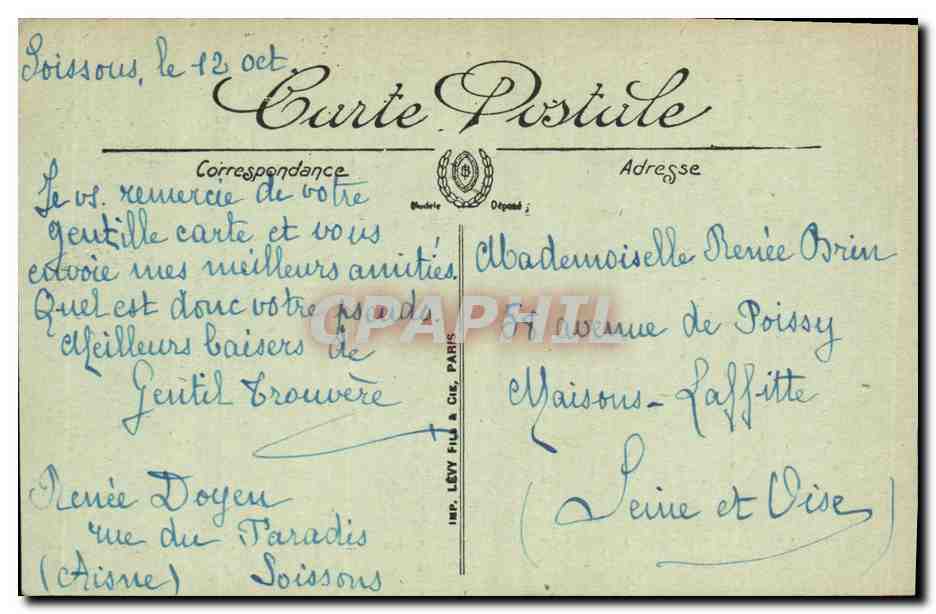 Soissons, le 12 oct.
Carte Postale
Correspondance
Adresse
Modèle Déposé
Je vs. remercie de votre
gentille carte et vous
envoie mes meilleurs amitiés.
Quel est donc votre pseudo.
Meilleurs baisers de
Gentil Trouvère
Renée Doyen
rue du Paradis
(Aisne) Soissons
IMP. LÉVY FILS & CIE, PARIS
Mademoiselle Renée Brin
avenue de Poissy
Maisons-Laffitte
(Seine et Oise)
CPAPHIL